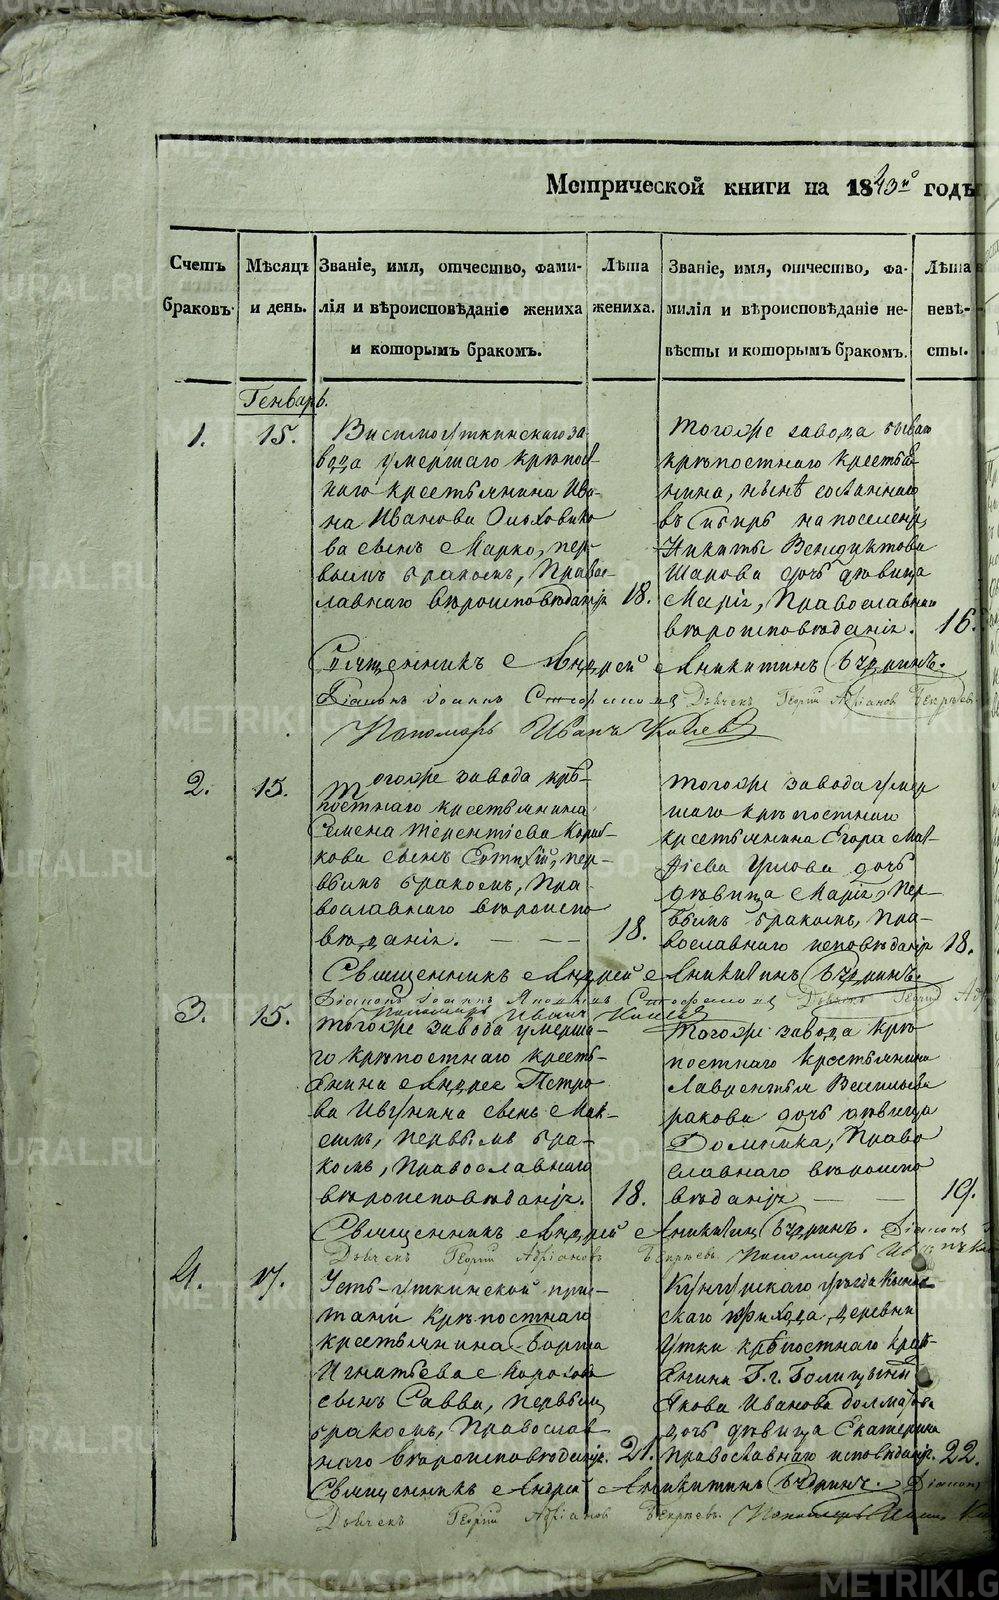 Метрической книги на 1843й годъ
Счетъ браковъ.
Мѣсяцъ и день.
Званіе, имя, отчество, фами-
лія и вѣроисповѣданіе жениха
и которымъ бракомъ.
Лѣта жениха.
Званіе, имя, отчество, фа-
милія и вѣроисповѣданіе не-
вѣсты и которымъ бракомъ.
Лѣта невѣ-
сты.
Генварь.
1.
15.
Висимоуткинскаго за
вода умершаго крѣпост
наго крестьянина Ива-
на Иванова
ва сынъ Марко, пер-
вымъ бракомъ, Право-
славнаго вѣроисповѣданія
18.
Тогоже завода бывш
крѣпостнаго крестья-
нина, нынѣ сосланнаго
въ Сибирь на поселеніе,
Никиты Венедиктова
Шарова дочь дѣвица
Марія, Православнаго
вѣроисповѣданія.
16.
Священникъ Андрей Аникитинъ Бѣдринъ.
Діаконъ Іоаннъ Дьячекъ Георгій Адріановъ
Пономарь Иванъ
2.
15.
Тогоже завода крѣ-
постнаго крестьянина
Семена Терентіева
кова сынъ Евтихій, пер-
вымъ бракомъ, Пра-
вославнаго вѣроиспо
вѣданія.
18.
Тогоже завода умер
шаго крѣпостнаго
крестьянина Егора Мат-
фіева Углова дочь
дѣвица Марія, пер-
вымъ бракомъ, Пра-
вославнаго исповѣданія
18.
Священникъ Андрей Аникитинъ Бѣдринъ.
Діаконъ Іоаннъ Дьячекъ Георгій
Пономарь Иванъ
3.
15.
Тогоже завода умерша-
го крѣпостнаго кресть-
янина Андрея Петро
ва сынъ Мак-
симъ, первымъ бра-
комъ, Православнаго
вѣроисповѣданія.
18.
Тогоже завода крѣ
постнаго крестьянина
Лаврентья Васильева
ракова дочь дѣвица
Домника, Право
славнаго вѣроиспо
вѣданія
19.
Священникъ Андрей Аникитинъ Бѣдринъ. Діаконъ
Дьячекъ Георгій Адріановъ Пономарь
4.
17.
Усть-уткинской прис-
тани крѣпостнаго
крестьянина Бориса
Игнатьева
сынъ Савва, первымъ
бракомъ, Православ
наго вѣроисповѣданія.
21.
Кунгурскаго уѣзда
скаго прихода, деревни
Утки крѣпостнаго крест-
янина Г. г. Голицына
Якова Иванова
дочь дѣвица Екатерина
православнаго исповѣданія.
22.
Священникъ Андрей Аникитинъ Бѣдринъ. Діаконъ
Дьячекъ Георгій Адріановъ Пономарь
METRIKI.GASO-URAL.RU